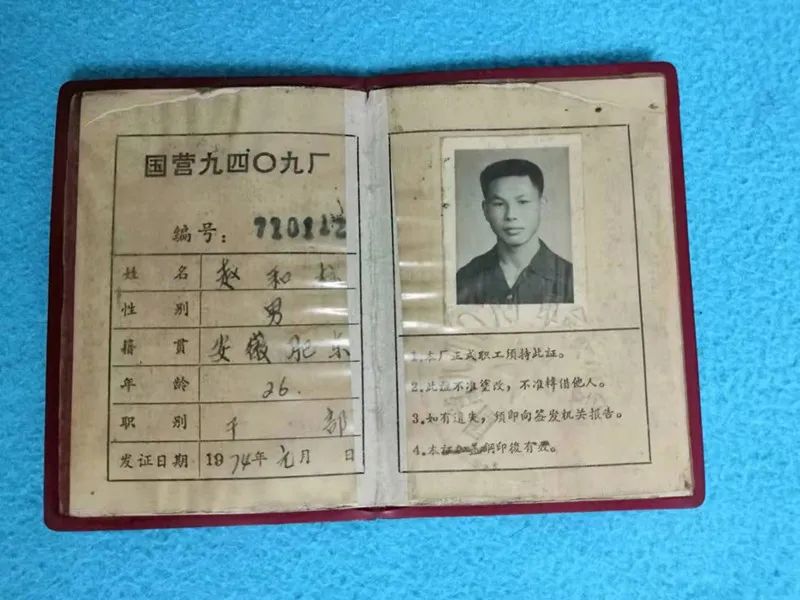 国营九四〇九厂
编号：710112
姓 名 赵和
性 别 男
籍 贯 安徽肥东
年 龄 26.
职 别 干 部
发证日期 1974年元月 日
1.本厂正式职工须持此证。
2.此证不准塗改，不准转借他人。
3.如有遗失，须即向签发机关报告。
4.本证 钢印後有效。